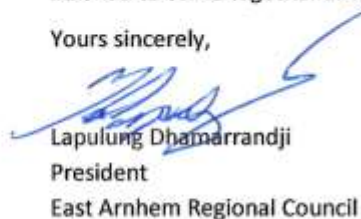 Yours sincerely,
Lapulung Dhamarrandji
President
East Arnhem Regional Council